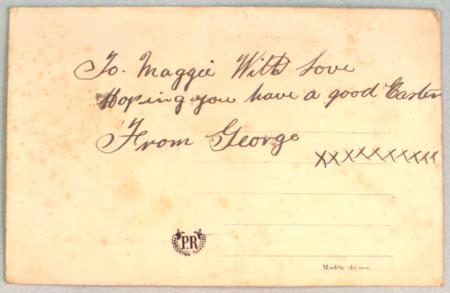 To. Maggie With Love
Hoping you have a good Easter
From George
xxxxxxxxxx
PR
Modèle déposé.